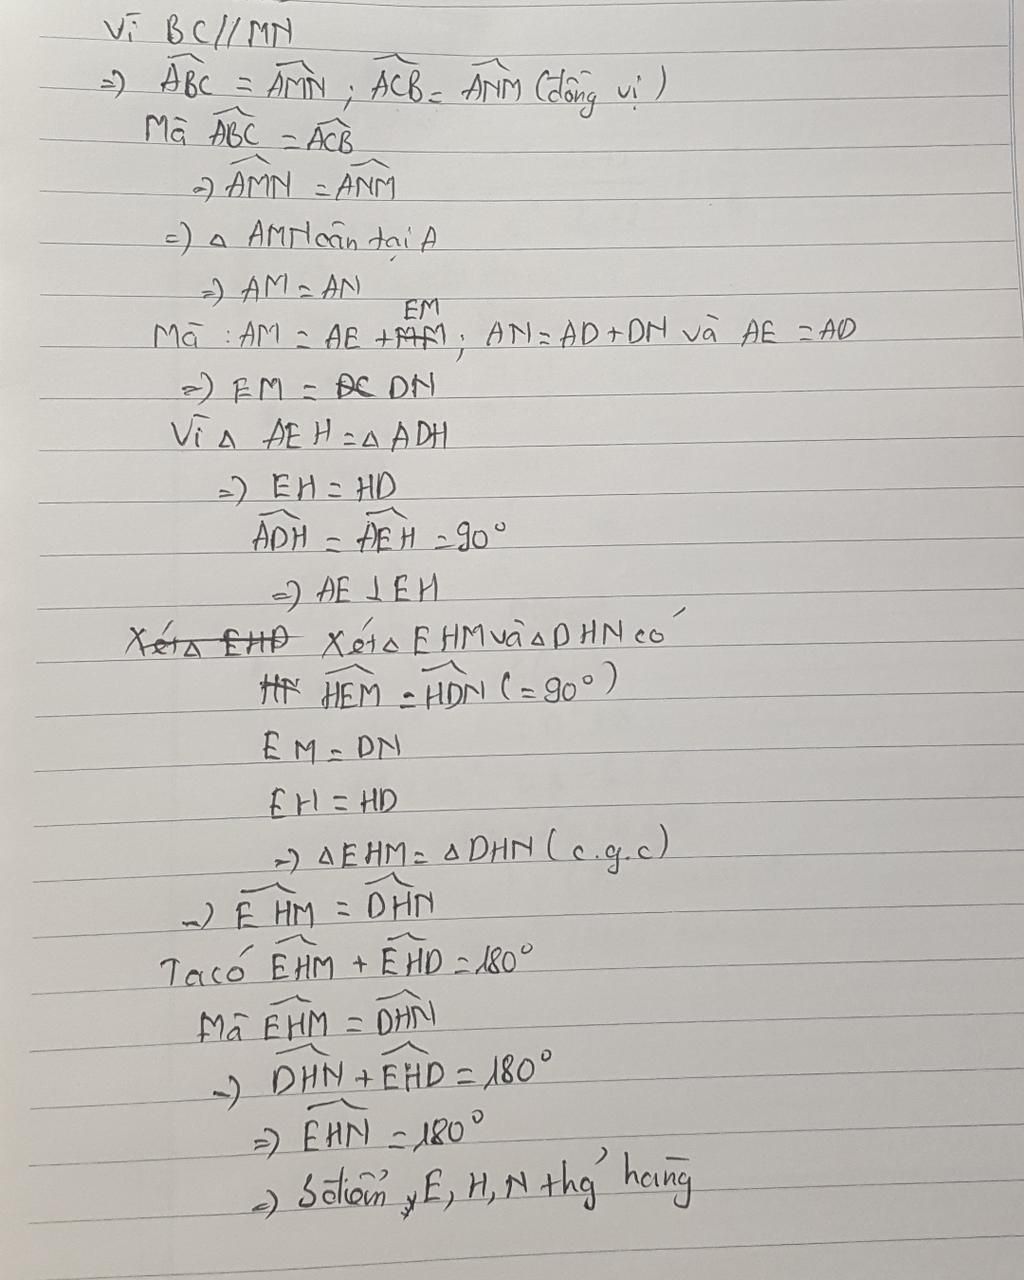 Vì BC//MN
=) ABC = AMN ; ACB = ANM (đồng vị)
Mà ABC = ACB
=) AMN = ANM
=) Δ AMN cân tại A
=) AM = AN
EM
Mà : AM = AE + AM ; AN = AD + DN và AE = AD
=) EM = DC DN
Vì Δ AEH = Δ ADH
=) EH = HD
ADH = AEH = 90°
=) AE ⊥ EH
Xét Δ EHD Xét Δ EHM và Δ DHN có
HEM = HDN (= 90°)
EM = DN
EH = HD
=) Δ EHM = Δ DHN (c.g.c)
=) EHM = DHN
Ta có EHM + EHD = 180°
Mà EHM = DHN
=) DHN + EHD = 180°
=) EHN = 180°
=) 3 điểm E, H, N thg hàng